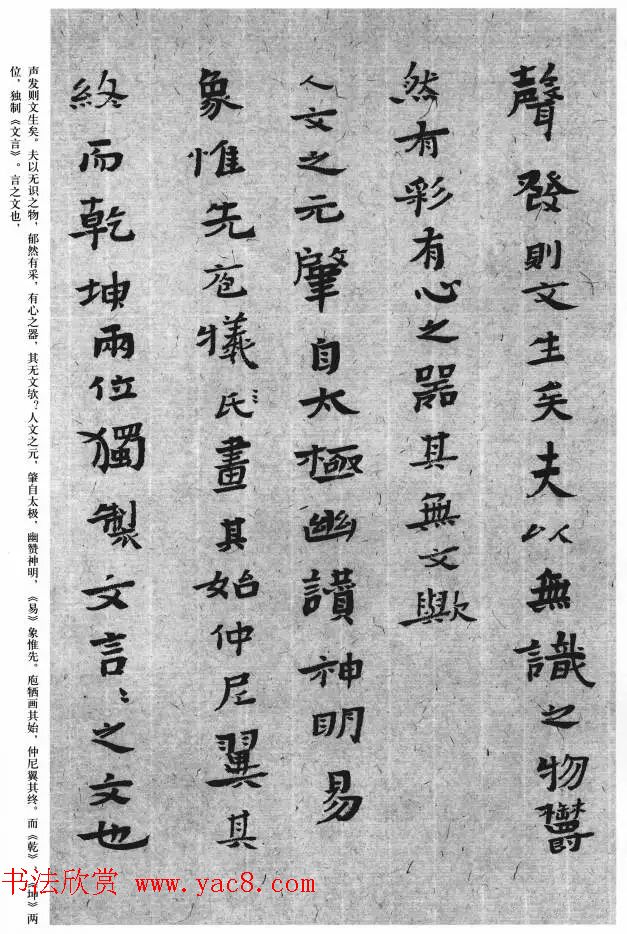 聲發則文生矣夫以無識之物鬱
然有彩有心之器其無文歟
人文之元肇自太極幽讃神明易
象惟先庖犧氏〻畫其始仲尼翼其
終而乾坤兩位獨製文言〻之文也
声发则文生矣。夫以无识之物，郁然有采，有心之器，其无文欤？人文之元，肇自太极，幽赞神明，《易》象惟先。庖牺画其始，仲尼翼其终。而《乾》、《坤》两
位，独制《文言》。言之文也，
书法欣赏 www.yac8.com